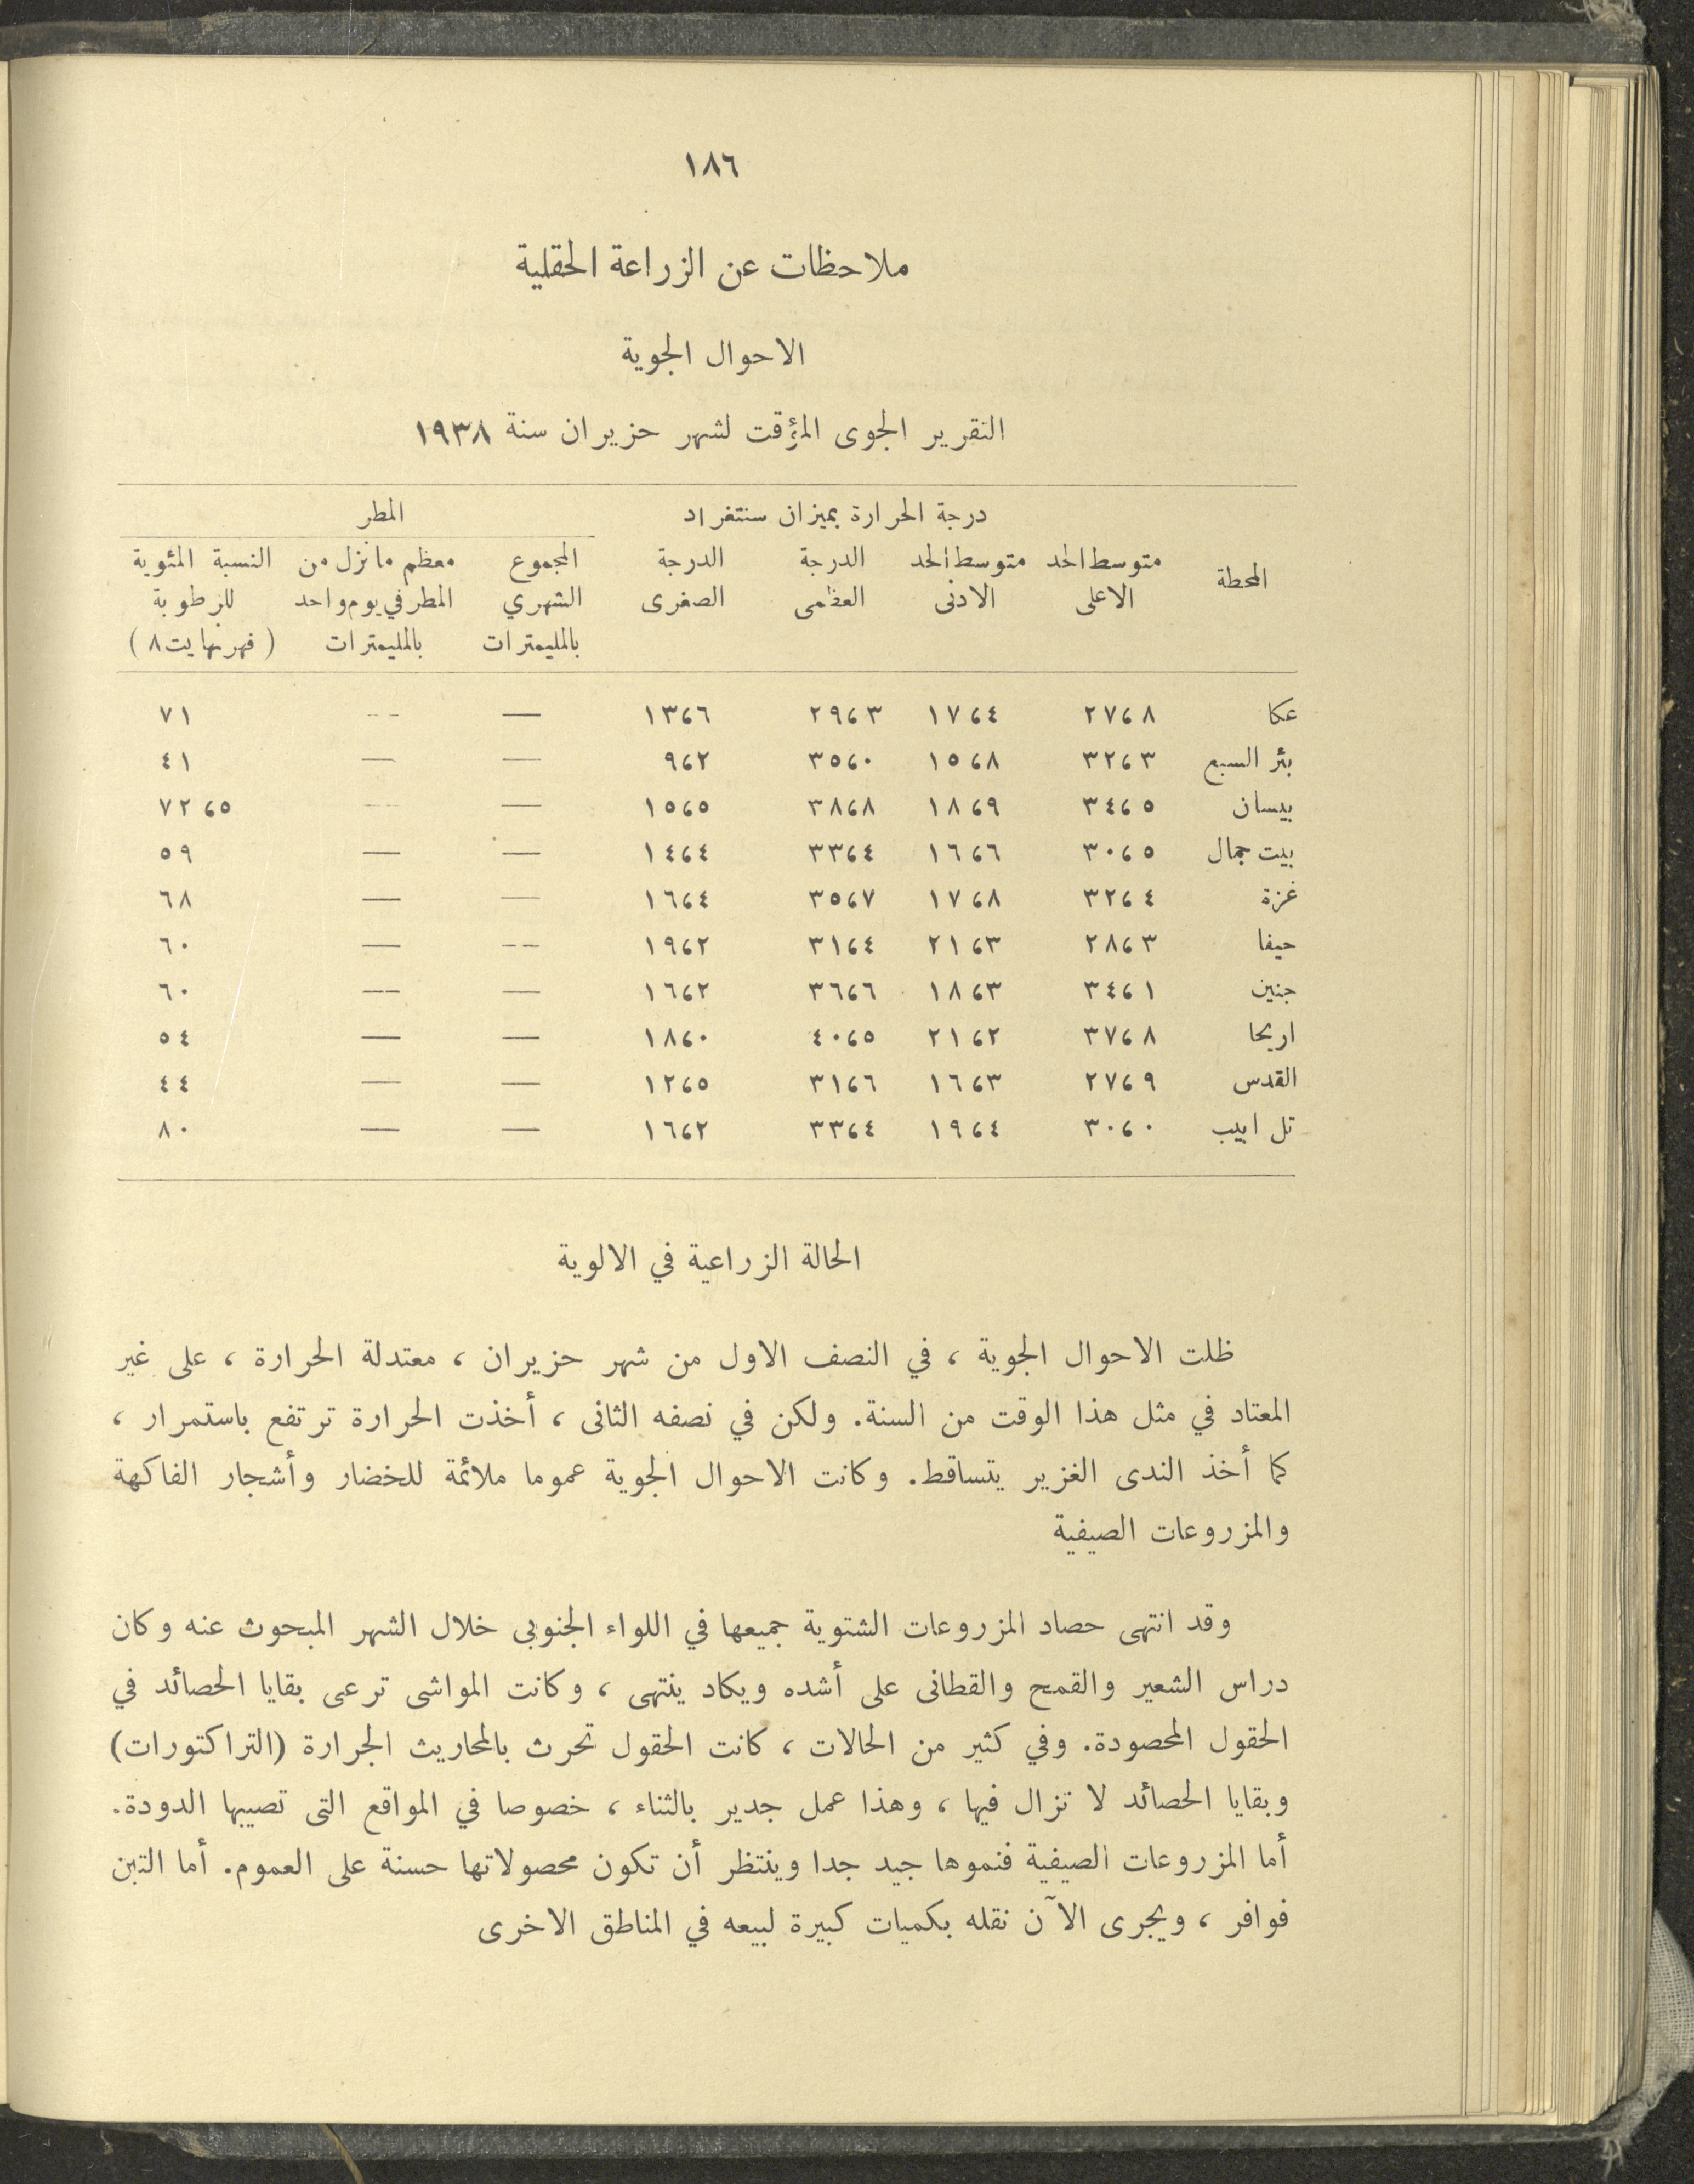 ١٨٦
ملاحظات عن الزراعة الحقلية
الاحوال الجوية
التقرير الجوى المؤقت لشهر حزيران سنة ١٩٣٨
درجة الحرارة بميزان سنتغراد المطر
المحطة متوسط الحد الاعلى متوسط الحد الادنى الدرجة العظمى الدرجة الصغرى المجموع الشهري بالمليمترات معظم ما نزل من المطر في يوم واحد بالمليمترات النسبة المئوية للرطوبة (فهرنهايت ٨)
عكا ٢٧،٨ ١٧،٤ ٢٩،٣ ١٣،٦ — — ٧١
بئر السبع ٣٢،٣ ١٥،٨ ٣٥،٠ ٩،٢ — — ٤١
بيسان ٣٤،٥ ١٨،٩ ٣٨،٨ ١٥،٥ — — ٧٢،٥
بيت جمال ٣٠،٥ ١٦،٦ ٣٣،٤ ١٤،٤ — — ٥٩
غزة ٣٢،٤ ١٧،٨ ٣٥،٧ ١٦،٤ — — ٦٨
حيفا ٢٨،٣ ٢١،٣ ٣١،٤ ١٩،٢ — — ٦٠
جنين ٣٤،١ ١٨،٣ ٣٦،٦ ١٦،٢ — — ٦٠
اريحا ٣٧،٨ ٢١،٢ ٤٠،٥ ١٨،٠ — — ٥٤
القدس ٢٧،٩ ١٦،٣ ٣١،٦ ١٢،٥ — — ٤٤
تل ابيب ٣٠،٠ ١٩،٤ ٣٣،٤ ١٦،٢ — — ٨٠
الحالة الزراعية في الالوية
ظلت الاحوال الجوية ، في النصف الاول من شهر حزيران ، معتدلة الحرارة ، على غير
المعتاد في مثل هذا الوقت من السنة. ولكن في نصفه الثانى ، أخذت الحرارة ترتفع باستمرار ،
كما أخذ الندى الغزير يتساقط. وكانت الاحوال الجوية عموما ملائمة للخضار وأشجار الفاكهة
والمزروعات الصيفية
وقد انتهى حصاد المزروعات الشتوية جميعها في اللواء الجنوبى خلال الشهر المبحوث عنه وكان
دراس الشعير والقمح والقطانى على أشده ويكاد ينتهى ، وكانت المواشى ترعى بقايا الحصائد في
الحقول المحصودة. وفي كثير من الحالات ، كانت الحقول تحرث بالمحاريث الجرارة (التراكتورات)
وبقايا الحصائد لا تزال فيها ، وهذا عمل جدير بالثناء ، خصوصا في المواقع التى تصيبها الدودة.
أما المزروعات الصيفية فنموها جيد جدا وينتظر أن تكون محصولاتها حسنة على العموم. أما التبن
فوافر ، ويجرى الآن نقله بكميات كبيرة لبيعه في المناطق الاخرى